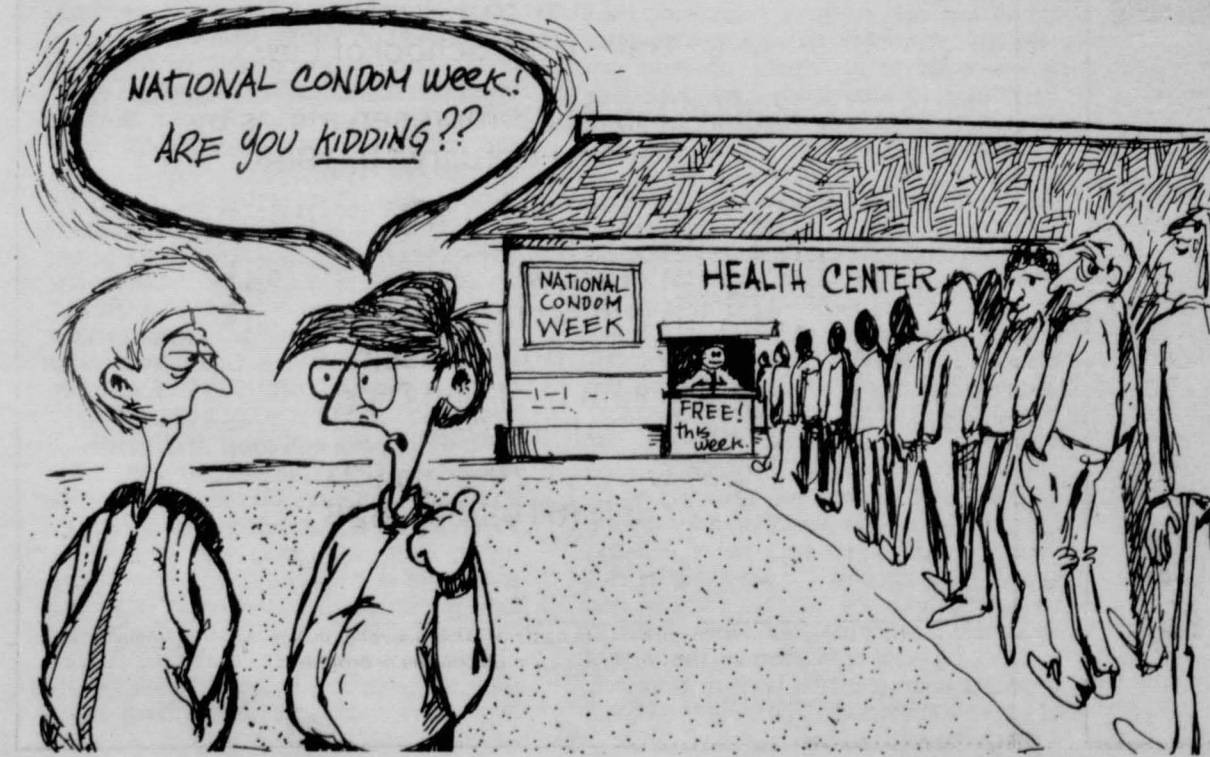 NATIONAL CONDOM WEEK!
ARE YOU KIDDING??
NATIONAL
CONDOM
WEEK
HEALTH CENTER
FREE!
this
week.